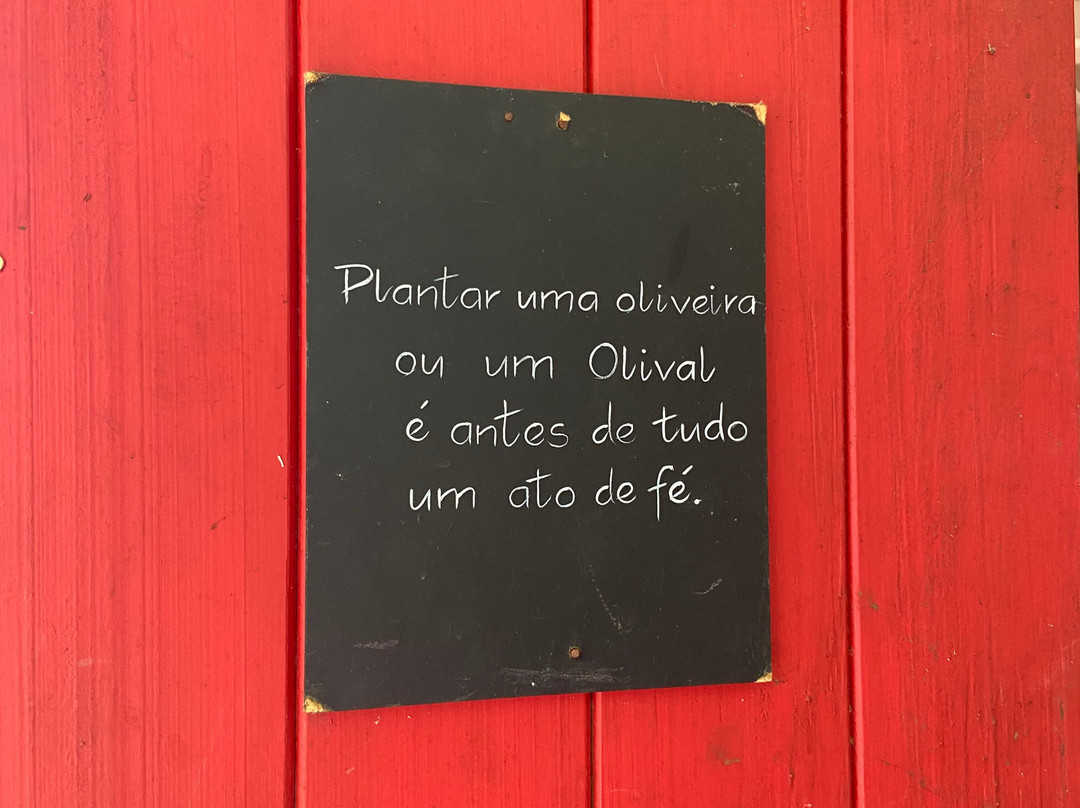 Plantar uma oliveira
ou um Olival
é antes de tudo
um ato de fé.